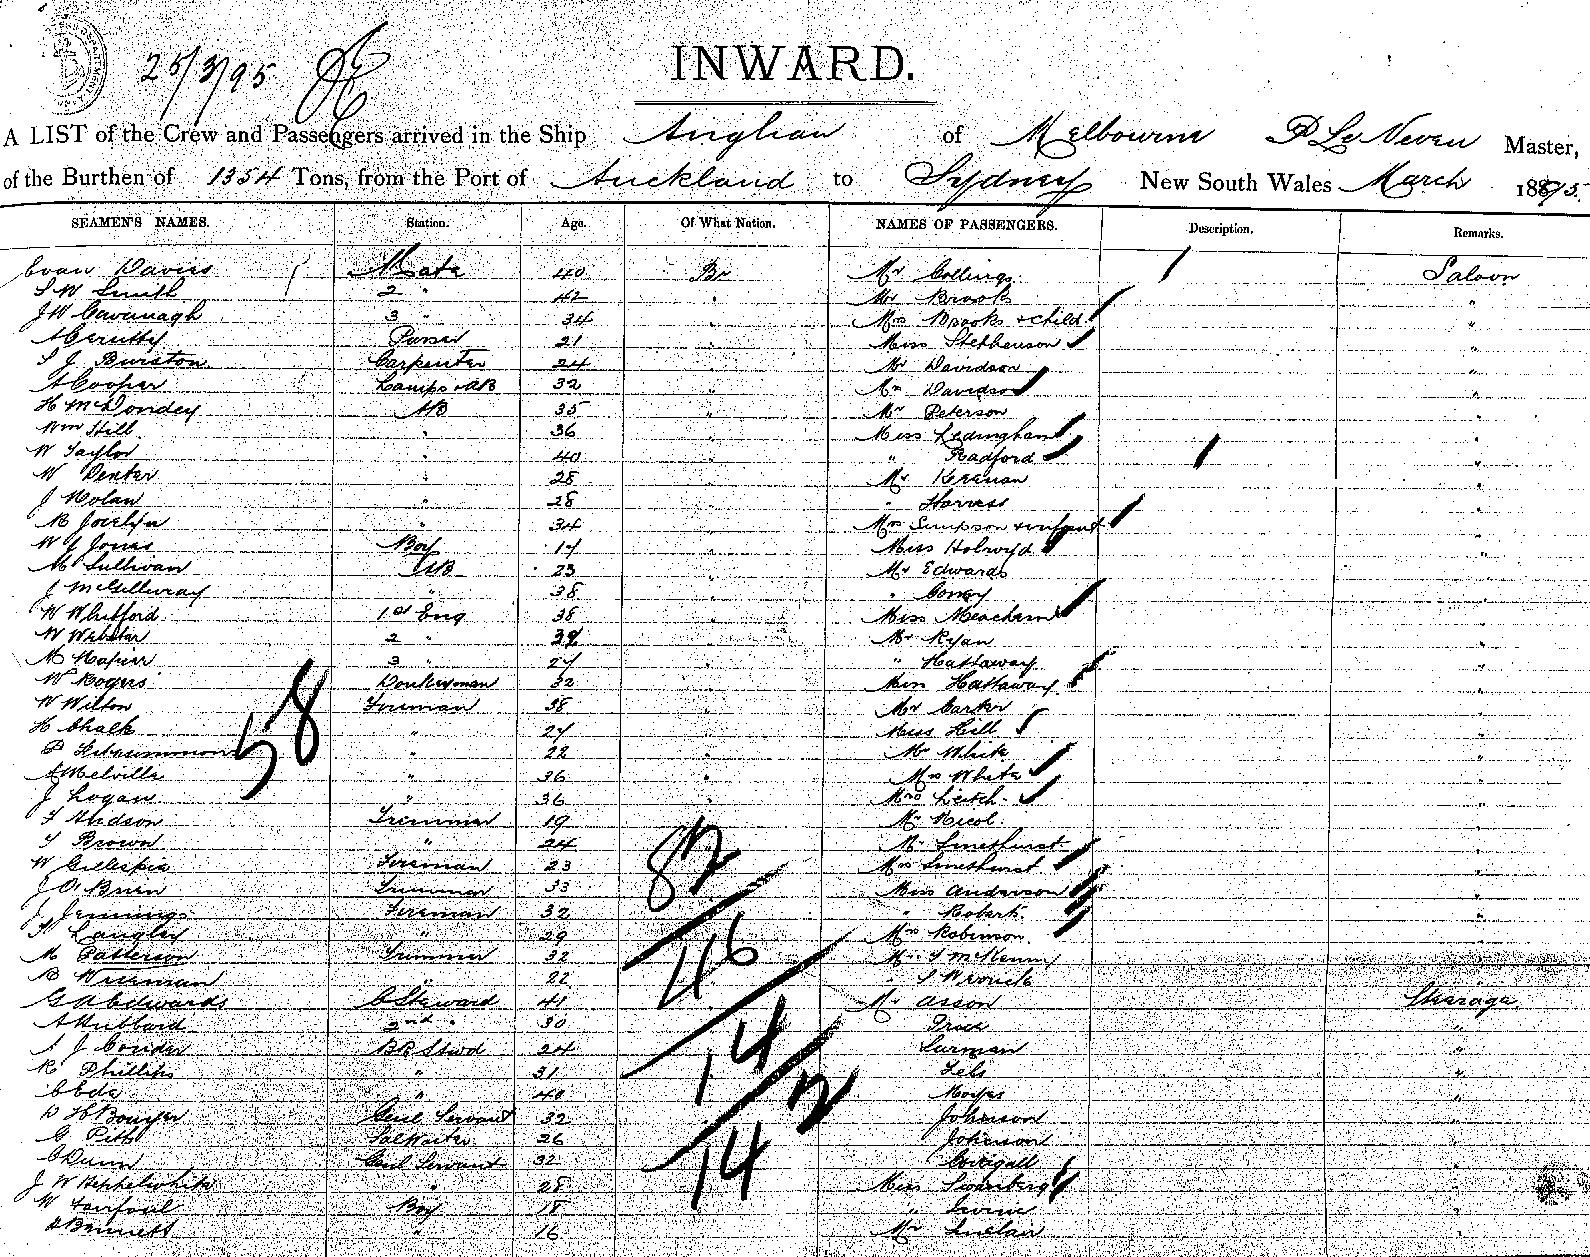 25/3/95
INWARD.
A LIST of the Crew and Passengers arrived in the Ship Anglian of Melbourne P Le Neveu Master,
of the Burthen of 1354 Tons, from the Port of Auckland to Sydney New South Wales March 1895.
SEAMEN'S NAMES. Station. Age. Of What Nation. NAMES OF PASSENGERS. Description. Remarks.
Evan Davies Mate 40 Br Mr Collings Saloon
S W Smith 2 " 42 " Mr Brooks "
J W Cavanagh 3 " 34 " Mrs Brooks + child "
A Cerutty Purser 21 " Miss Stephenson "
S J Burston Carpenter 24 " Mr Davidson "
A Cooper Lamps + AB 32 " Mrs Davidson "
H AB 35 " Mr Peterson "
Wm Hill " 36 " Miss Ledingham "
W Taylor " 40 " " Radford "
W Dexter " 28 " Mr Keenan "
J Nolan " 28 " " "
R Jocelyn " 34 " Mrs Simpson + infant "
W J Jones Boy 17 " Miss Holroyd "
M Sullivan AB 23 " Mr Edwards "
J McGillivray " 38 " " "
W Whitford 1st Eng 38 " Miss Meacham "
W Webster 2 " 39 " Mr Ryan "
M Napier 3 " 27 " " Hattaway "
W Rogers Donkeyman 32 " Miss Hattaway "
W Wilton Fireman 38 " Mr Carter "
H Chalk " 27 " Miss Hill "
P Fitzsimmons " 22 " Mr White "
A Melville " 36 " Mrs White "
J Logan " 36 " Mrs Leitch "
T Hudson Trimmer 19 Mr Nicol "
T Brown " 24 Mr Smethurst "
W Gillespie Fireman 23 Mrs Smethurst "
J O'Brien Trimmer 33 Miss Anderson "
J Jennings Fireman 32 " Robert "
Langley " 29 Mrs Robinson "
M Patterson Trimmer 32 Mr "
B " 22 "
G A Edwards C Steward 41 Mr Asson Steerage
A Hubbard 2nd " 30 "
J BR Stwd 24 Surman "
R Phillips " 31 "
" 40 Moyes "
D H Bowyer Genl Servant 32 Johnson
G Pitt Sal Waiter 26 Johnson
C Dunn Genl Servant 32 Corrigall
J W Hepplewhite " 28 Miss Swanberg
W Boy 18 "
Bennett " 16 Mr Sinclair
58
82
46
14
2
14